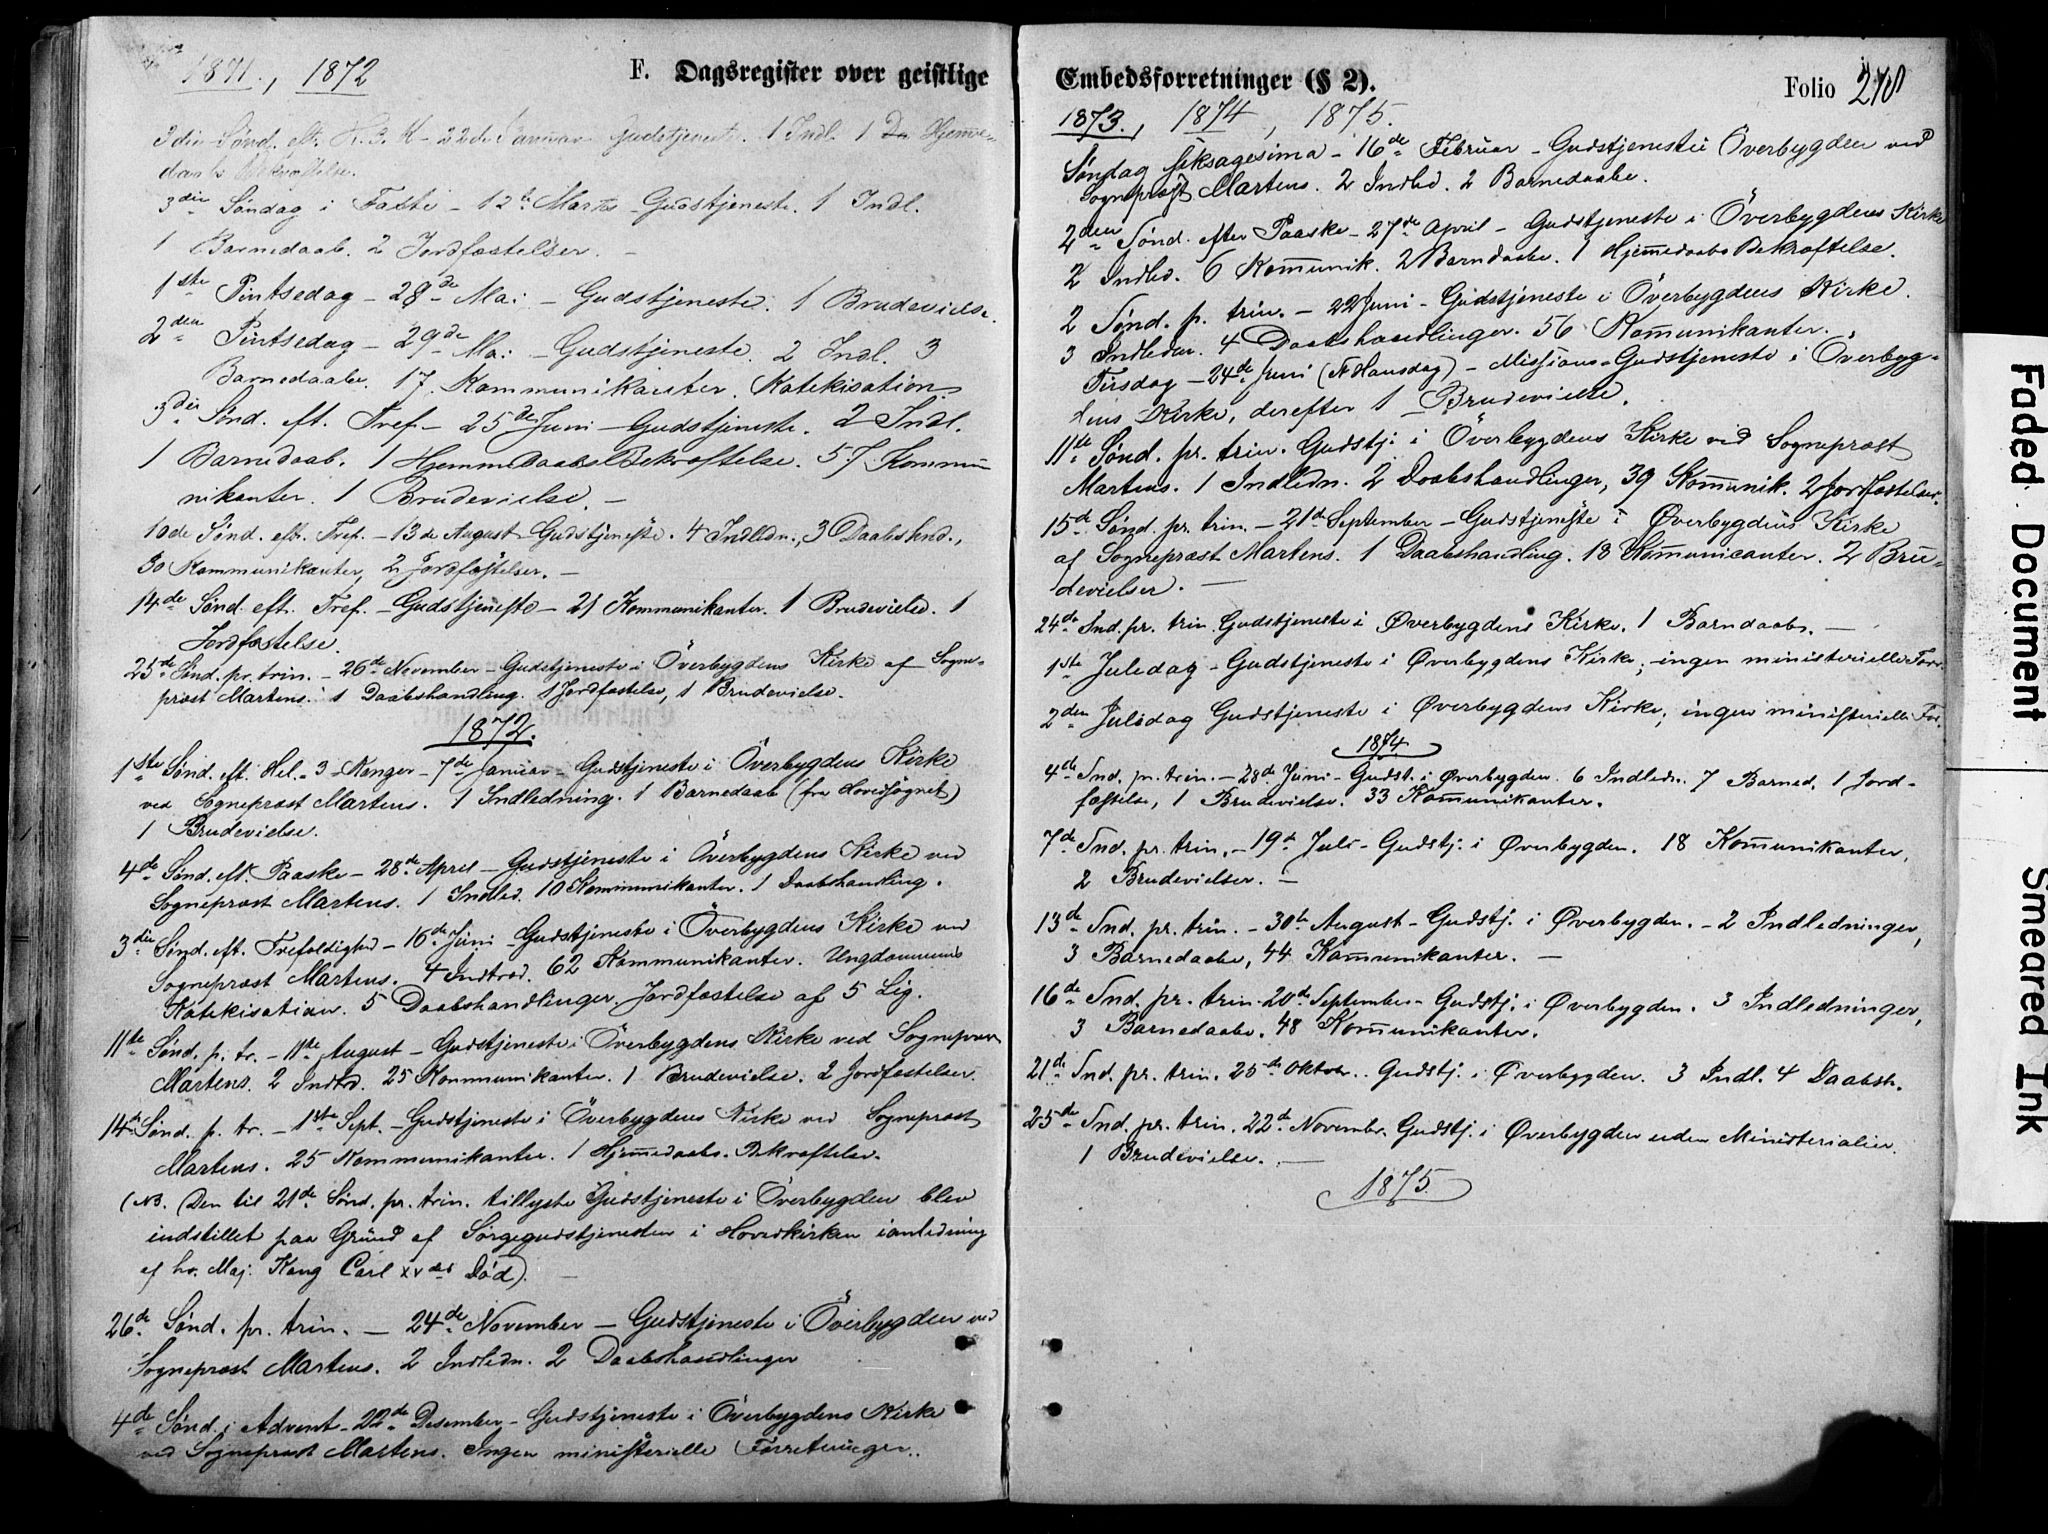 1871., 1872
F. Dagsregister over geistlige
3die Sønd. eft. H. 3 K - 22de Januar Gudstjenest. 1 Indl. 1 Hjemme-
daabs Bekræftelse.
3die Søndag i Faste - 12te Marts - Gudstjeneste. 1 Indl.
1 Barnedaab. 2 Jordfæstelser. -
1ste Pintsedag - 28de Mai - Gudstjeneste. 1 Brudevielse.
2den Pintsedag - 29de Mai - Gudstjeneste. 2 Indl. 3
Barnedaabe. 17. Kommunikanter. Katekisation.
3die Sønd. eft. Tref. - 25de Juni - Gudstjeneste. 2 Indl.
1 Barnedaab. 1 HjemmeDaabsBekræftelse. 57 Kommu
nikanter. 1 Brudevielse. -
10de Sønd. eftr. Tref. - 13de August - Gudstjeneste. 4 Indledn., 3 Daabshnd.,
30 Kommunikanter, 2 Jordfæstelser. -
14de Sønd. eft. Tref. - Gudstjeneste - 21 Kommunikanter. 1 Brudevielse. 1
Jordfæstelse.
25de Sønd. pr. trin. - 26de November - Gudstjeneste i Överbygdens Kirke af Sogne-
præst Martens. 1 Daabshandling. 1 Jordfæstelse, 1 Brudevielse.
1872.
1ste Sønd. eft. Hel. 3 Konger - 7de Januar - Gudstjeneste i Överbygdens Kirke
ved Sognepræst Martens. 1 Indledning. 1 Barnedaab (fra Hovedsognet)
1 Brudevielse.
4de Sønd. eft. Paaske - 28de April - Gudstjeneste i Överbygdens Kirke ved
Sognepræst Martens. 1 Indled. 10 Kommunikanter. 1 Daabshandling.
3die Sønd. eft. Trefoldighed - 16de Juni - Gudstjeneste i Överbygdens Kirke ved
Sognepræst Martens. 4 Indled. 62 Kommunikanter. Ungdommens
Katekisation. 5 Daabshandlinger. Jordfæstelse af 5 Lig.
11te Sønd. p. tr. - 11te August - Gudstjeneste i Överbygdens Kirke ved Sognepræst
Martens. 2 Indled. 25 Kommunikanter. 1 Brudevielse. 2 Jordfæstelser.
14de Sønd. p. tr. - 1ste Sept. - Gudstjeneste i Överbygdens Kirke ved Sognepræst
Martens. 25 Kommunikanter. 1 Hjemedaabs. Bekræftelse.
(NB. (Den til 21de Sønd. pr. trin. tillyste Gudstjeneste i Överbygden blev
indstillet paa Grund af Sørgegudstjenesten i Hovedkirken ianledning
af hs. Maj. Kong Carl XVdes Död). -
26de Sønd. pr. trin. - 24de November - Gudstjeneste i Överbygden ved
Sognepræst Martens. 2 Indledn. 2 Daabshandlinger
4de Sønd. i Advent - 22de Desember - Gudstjeneste i Överbygdens Kirke
ved Sognepræst Martens. Ingen ministerielle Forretninger.
Embedsforretninger (§ 2).
Folio 270
1873., 1874, 1875.
Søndag Seksagesima - 16de Februar - Gudstjeneste i Överbygden ved
Sognepræst Martens. 2 Indled. 2 Barnedaabe.
2den Sønd. efter Paaske - 27de April - Gudstjeneste i Överbygdens Kirke
2 Indled. 6 Kommunik. 2 Barndaabe. 1 HjemedaabsBekræftelse.
2 Sønd. p. trin. - 22 Juni - Gudstjeneste i Överbygdens Kirke.
3 Indledn. 4 Daabshandlinger. 56 Kommunikanter.
Tirsdag - 24de Juni (St Hansdag) - Missions-Gudstjeneste i Överbyg-
dens Kirke, derefter 1 Brudevielse.
11te Sønd. pr. trin. Gudstj. i Överbygdens Kirke ved Sognepræst
Martens. 1 Indledn. 2 Daabshandlinger, 39 Kommunik. 2 Jordfæstelser.
15de Sønd. pr. trin. - 21de September - Gudstjeneste i Øverbygdens Kirke
af Sognepræst Martens. 1 Daabshandling. 18 Kommunicanter. 2 Bru-
devielser. -
24de Snd. pr. trin. Gudstjeneste i Øverbygdens Kirke. 1 Barndaab. -
1ste Juledag - Gudstjeneste i Øverbygdens Kirke; ingen ministerielle Forr.
2den Juledag Gudstjeneste i Øverbygdens Kirke; ingen ministerielle For.
1874
4de Snd. pr. trin. - 28de Juni - Gudst. i Øverbygden. 6 Indledn. 7 Barned. 1 Jord-
fæstelse, 1 Brudevielse. 33 Kommunikanter.
7de Snd. pr. trin. - 19de Juli - Gudstj. i Øverbygden. 18 Kommunikanter,
2 Brudevielser. -
13de Snd. pr. trin. - 30te August - Gudstj. i Øverbygden. - 2 Indledninger,
3 Barnedaabe, 44 Kommunikanter. -
16de Snd. pr. trin. 20de September - Gudstj. i Øverbygden. 3 Indledninger,
3 Barnedaabe. 48 Kommunikanter.
21de Snd. pr. trin. 25de Oktobr. Gudstj. i Øverbygden. 3 Indl. 4 Daabsh.
25de Snd. pr. trin. 22de Novembr. Gudstj. i Øverbygden uden Ministerialier.
1 Brudevielse. -
1875.
Faded Document
Smeared Ink